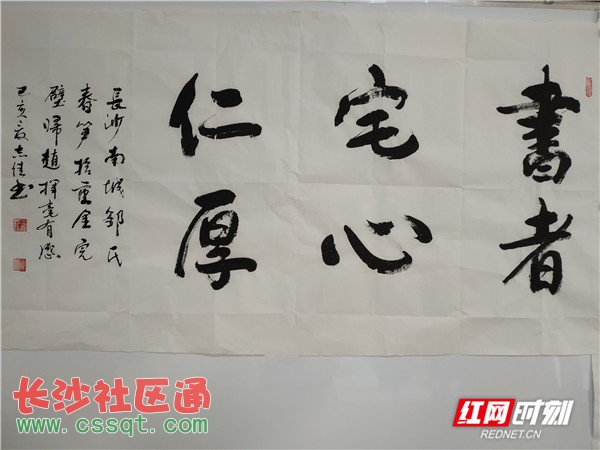 書者
宅心
仁厚
長沙南城鄒氏
春笋拾重金完
璧歸趙揮毫有感
己亥夏志佳书
长沙社区通
www.cssqt.com
红网时刻
REDNET.CN